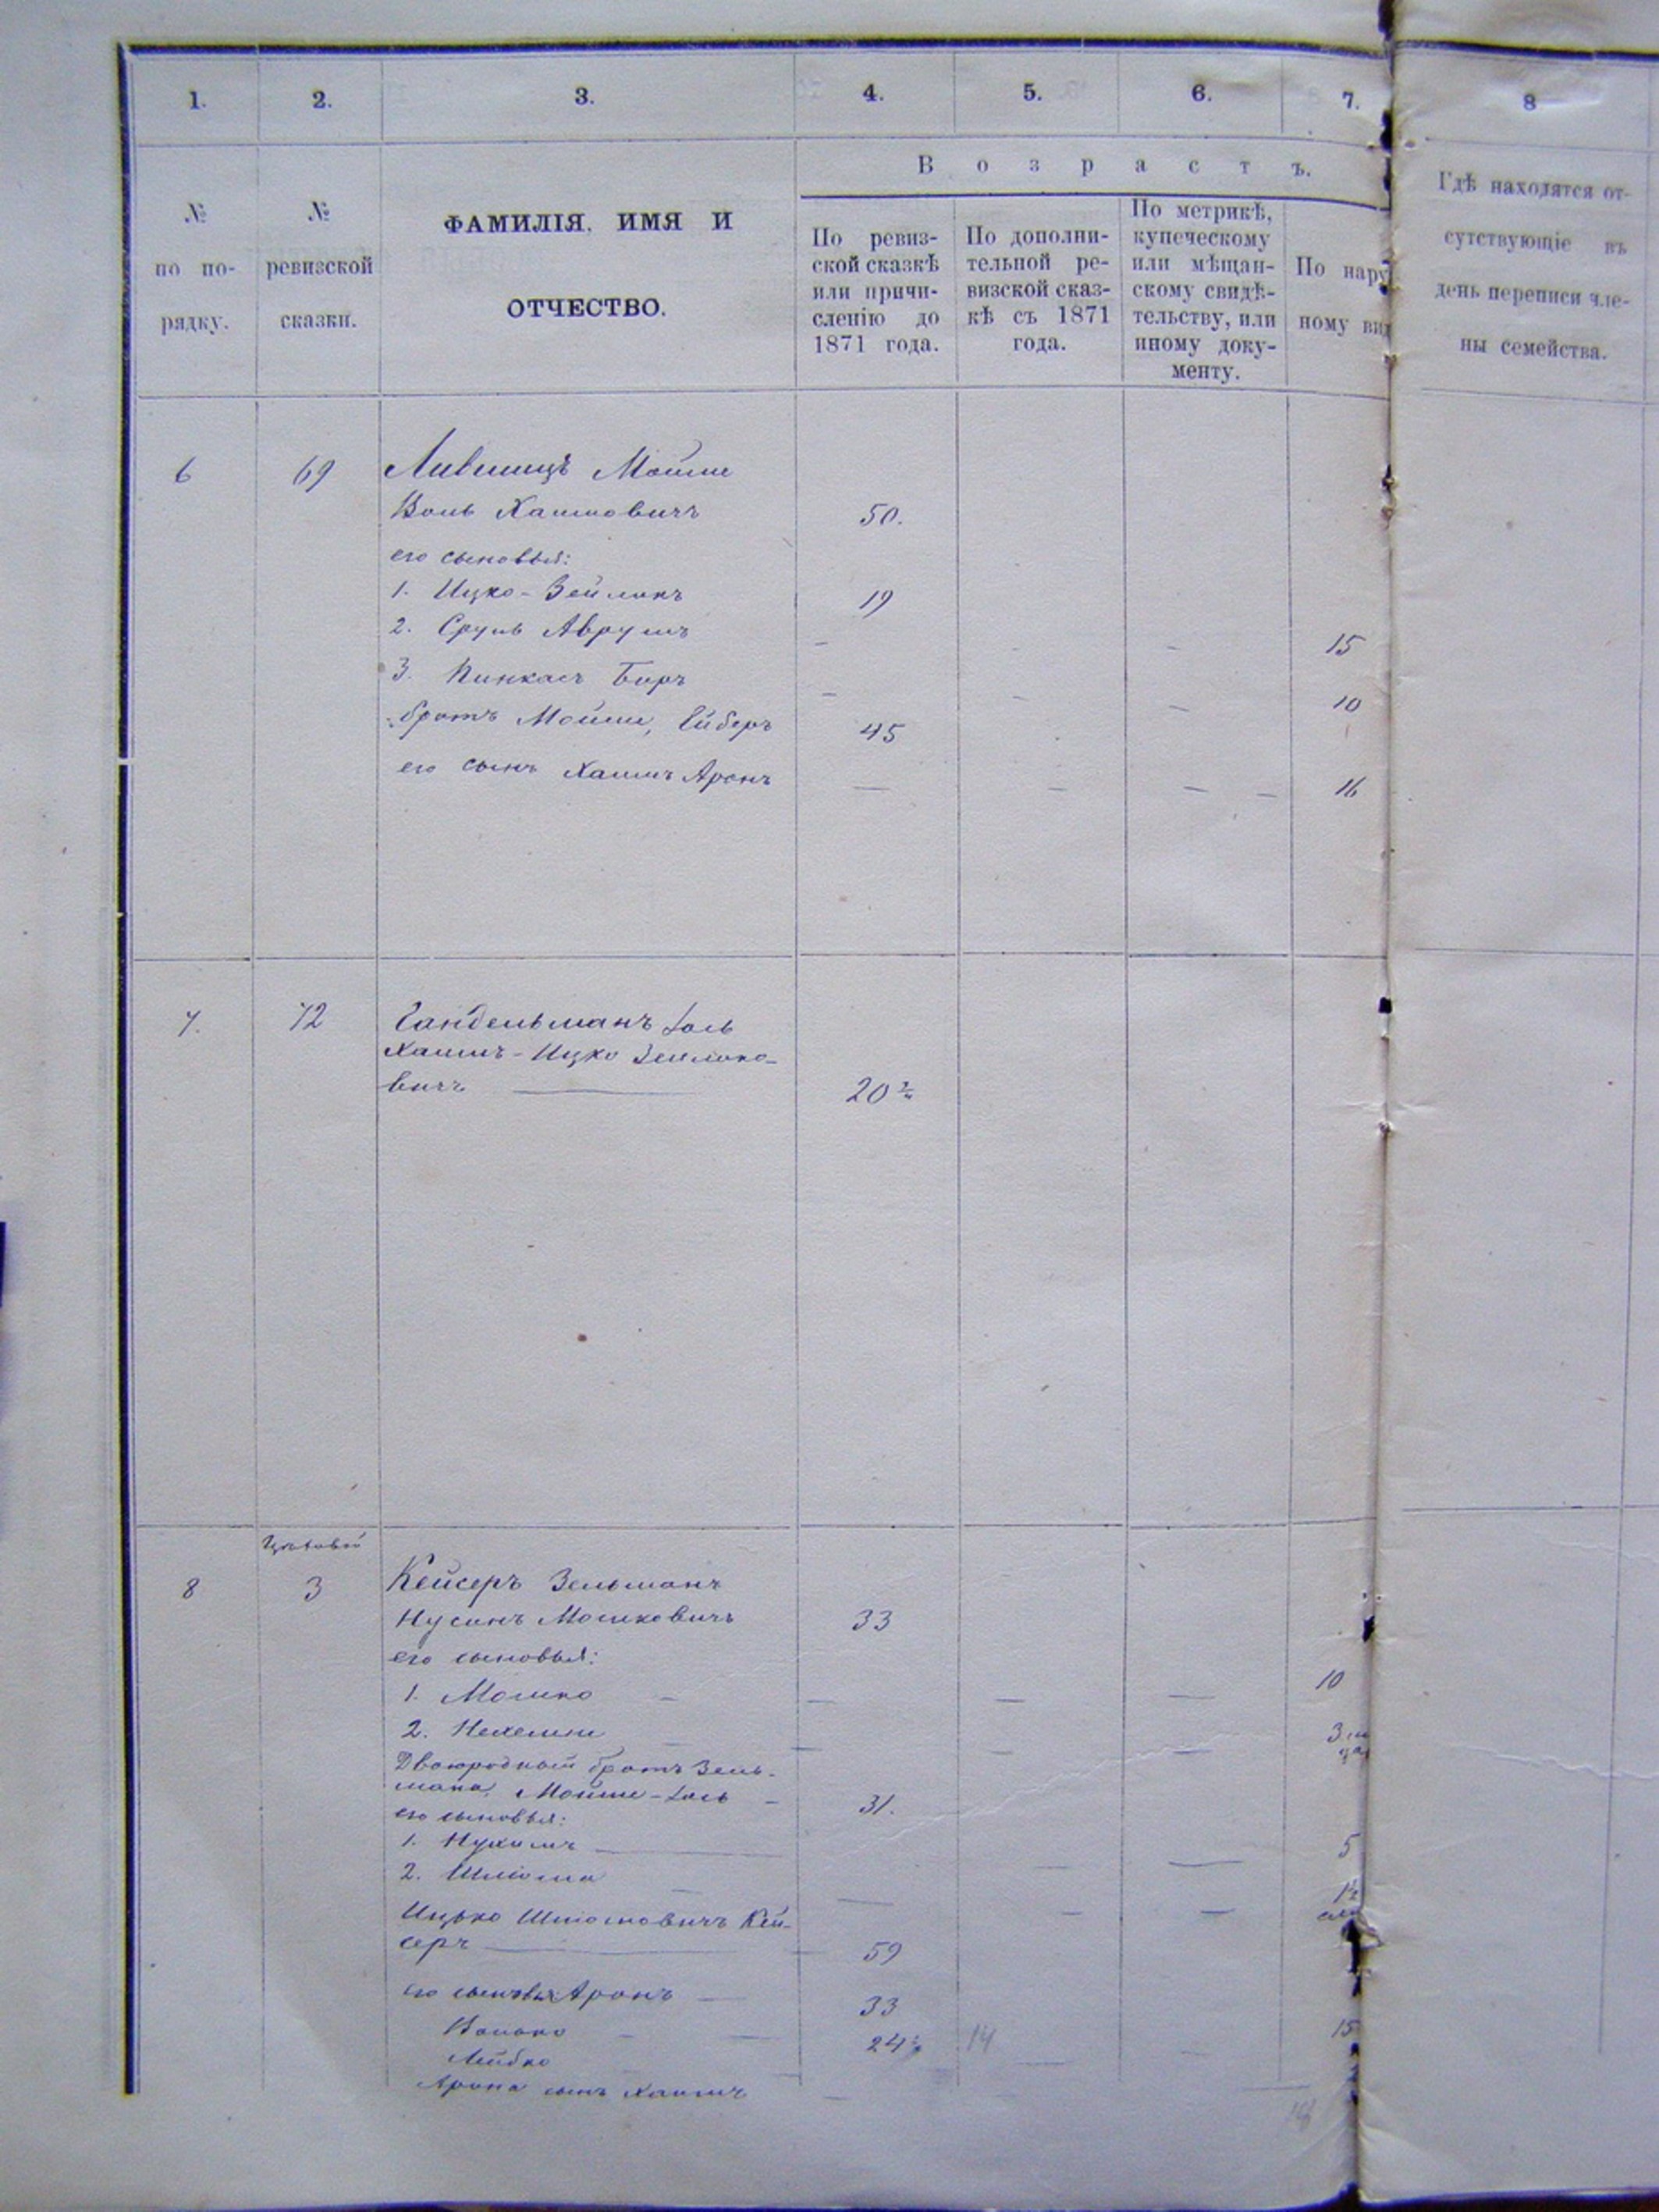 1. 2. 3. 4. 5. 6. 7. 8
№ по по-рядку.
№ ревизской сказки.
ФАМИЛІЯ, ИМЯ И
ОТЧЕСТВО.
Возрастъ.
По ревиз-
ской сказкѣ
или причи-
сленію до
1871 года.
По дополни-
тельной ре-
визской сказ-
кѣ съ 1871
года.
По метрикѣ,
купеческому
или мѣщан-
скому свидѣ-
тельству, или
иному доку-
менту.
По нару
ному вид
Гдѣ находятся от-
сутствующіе въ
день переписи чле-
ны семейства.
6 69 Лившицъ Мойше
Воль Хаимовичъ 50.
его сыновья:
1. Ицко-Зейманъ 19
2. Сруль Аврумъ - - - 15
3. Пинкасъ Беръ - - - 10
братъ Мойши, Лейберъ 45
его сынъ Хаимъ Аронъ — — — — 16
7. 72 Гандельманъ Іоль
Хаимъ-Ицко Зеймано-
вичъ — 20 ½
8 3 Кейсеръ Зельманъ
Нусинъ Мошковичъ 33
его сыновья:
1. Мошко — — — — 10
2. — — — 3
Двоюродный братъ Зель-
мана, Мойше-Іоль — 31.
его сыновья:
1. Нухимъ — — — 5
2. Шлёма — — — — 1½
Ицько Шлёмовичъ Кей-
серъ — 59
его сыновья Аронъ — 33
Волько — 24½ 14 15
Лейбко
Арона сынъ Хаимъ 14